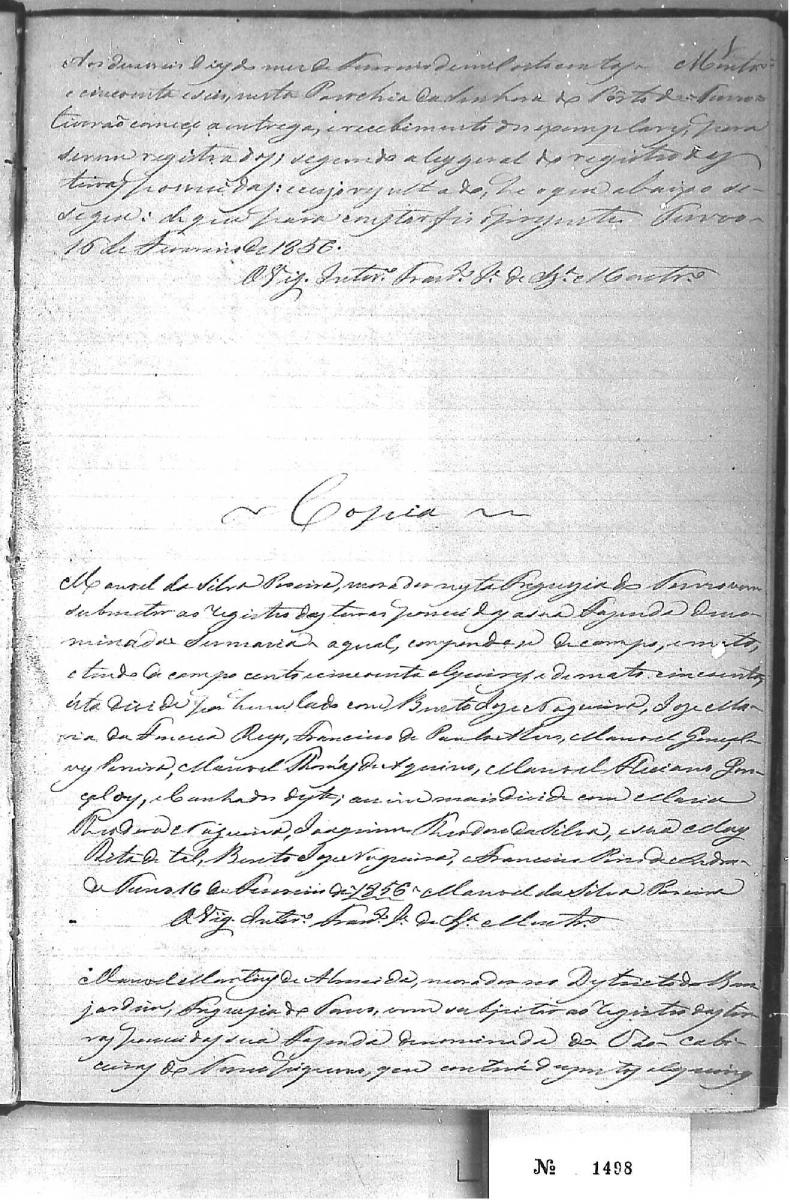 Aos deseseis dias do mes de Fevereiro de mil oito centos Montr.º
e cincoenta e seis, nesta Parochia da Senhora do Pôrto do Turvo
tiverão começo a entrega, e recebimento dos exemplares, para
serem registrados; segundo a ley geral do registro das
terras possuidas: cujo resultado, he o que abaixo se
segue: do que para constar fis o presente Turvo
16 de Fevereiro de 1856.
O Vig. Inter.º Fran.co J.e de Sz.ª Montr.º
Copia
Manoel da Silva Pereira, morador nesta Freguezia do Turvo vem
submeter ao registro das terras possuidas a sua Fazenda deno-
minada Sesmaria a qual, compõem se de campo, e mato,
e tendo de campo cento e cincoenta alqueires e de mato cincoenta,
esta divide por hum lado com Bento Joze Nogueira, Joze Ma-
ria da Fonceca Reys, Francisco de Paula Alves, Manoel Gonçal-
ves Pereira, Manoel Thomás de Aquino, Manoel Feliciano Gon-
çalves, e Cunhados deste; assim mais divide com Maria
Theodora Nogueira, Joaquim Theodoro da Silva, e sua May
Rita de tal, Bento Joze Nogueira, e Francisco Pires de Andra-
de Turvo 16 de Fevereiro de 1856 Manoel da Silva Pereira
O Vig. Inter.º Fran.co J.e de Sz.ª Montr.º
Manoel Martins de Almeida, morador no Destricto do Bom
jardim, Freguezia do Turvo, vem sujeitar ao registro das ter-
ras possuidas sua Fazenda denominada do cabi-
ceiras do Turvo Piqueno, que conterá duzentos alqueires
Nº 1498